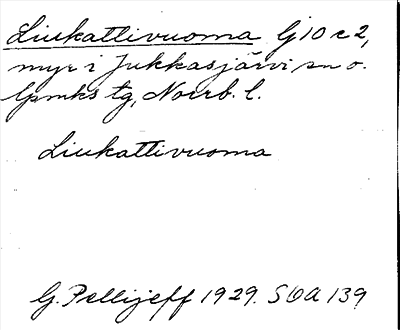 Liukattivuoma Gj 10 c 2,
myr i Jukkasjärvi sn o.
lpmks tg, Norrb. l.
Liukattivuoma
G. Pellijeff 1929. SOA 139